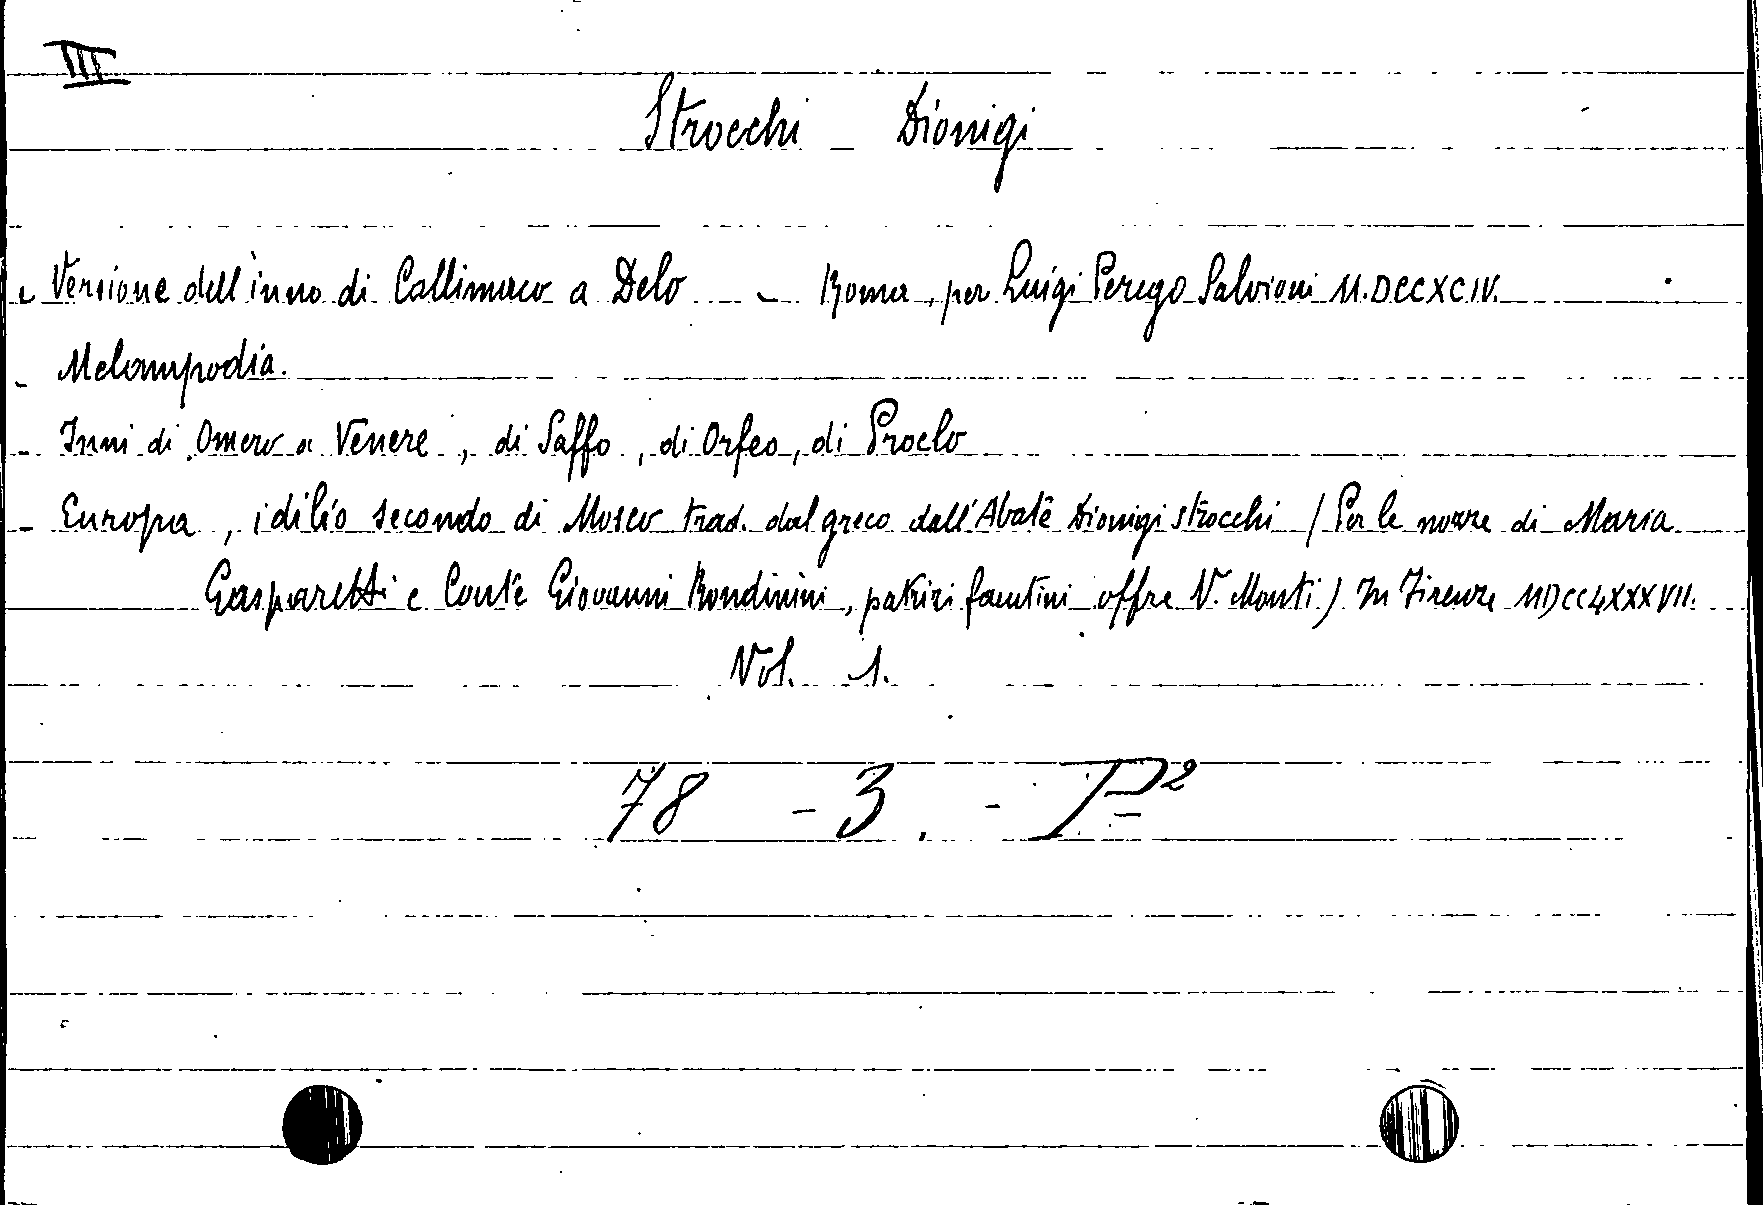 III
Strocchi - Dionigi
- Versione dell'inno di Callimaco a Delo - Roma, per Luigi Perego Salvioni M.DCCXCIV.
- Melampodia.
- Inni di Omero a Venere, di Saffo, di Orfeo, di Proclo
- Europa, idilio secondo di Mosco trad. dal greco dall'Abate Dionigi Strocchi / Per le nozze di Maria
Gasparetti e Conte Giovanni Rondinini, patrizi faentini offre V. Monti) In Firenze MDCCLXXXVII.
Vol. 1.
78 - 3. - P²